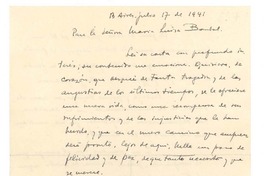 B. Aires, julio 17 de 1941
Para la señora María Luisa Bombal.
Leí su carta con profundo in-
terés, su contenido me emociona. Quisiera, de
corazón, que después de tanta tragedia y de las
angustias de los últimos tiempos, se le ofreciese
una nueva vida, como una recompensa de sus
sufrimientos y de las injusticias que la han
herido, y que en el nuevo camino que empieza
será pronto, lejos de aquí, bello con pan de
felicidad y de paz, de que tanto necesita y que
se merece.